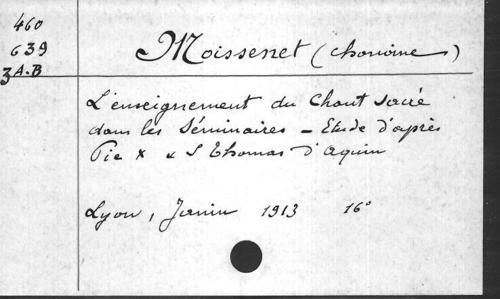 460
639
3 A.B
Moissenet (chanoine)
L'enseignement du Chant sacré
dans les Séminaires - Etude d'après
Pie X & S Thomas d'Aquin
Lyon, Janin 1913 16°